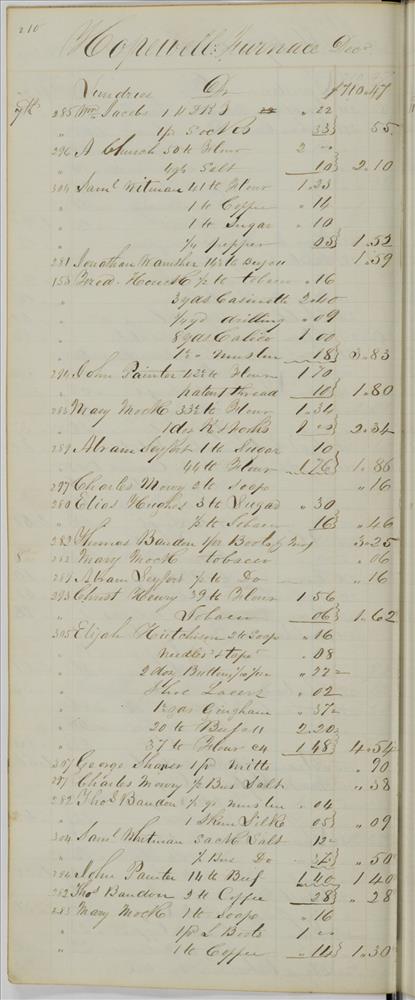 210
Hopewell Furnace Decr
Sundries Dr $710.47
7th 285 Wm Jacobs .. 22
" 1 pr Socks 33} 55
296 A Church 50 lb Flour 2 ..
" Salt 10} 2.10
304 Saml Witman 41 lb Flour 1.23
" 1 lb Coffee " 14
" 1 lb Sugar " 10
" 1/4 pepper 05} 1.52
281 Jonathan 1.59
158 Fred. Houck 1/2 lb tobacco " 16
" 3 yds Casinett 2.40
" drilling " 09
" 8 yds Calico 1 00
" muslin 18} 3.83
294 John Painter 42 1/2 lb Flour 1 70
" patent thread 10} 1.80
285 Mary Mock 33 1/2 lb Flour 1.34
" 1 doz K & Forks 1 .. } 2.34
289 Abram Seyfert 1 lb Sugar 10
" 44 lb Flour 1.76} 1.86
297 Charles Mowy 2 lb Soap " 16
280 Elias Hughes 3 lb Sugar " 30
" 1/2 lb Tobacco 16} " 46
282 Thomas Baudon 1 pr Boots 3.25
285 Mary Mock tobacco " 06
289 Abram Seyfert 1/2 lb Do " 16
293 Christ Henry 39 lb Flour 1 56
" Tobacco 06} 1.62
305 Elijah Hutchison 2 lb Soap " 16
" needles & tape " 08
" 2 doz Buttons " 22
" Shoe Laces " 02
" Gingham " 37 1/2
" 20 lb Beef 11 2.20
" 37 lb Flour C4 1 48} 4.54
307 George Shaner 1 pr Mitts " 90
297 Charles Mowy 1/2 Bus Salt " 38
282 Thos Baudon muslin " 04
" 1 Skein Silk 05} " 09
304 Saml Whitman Sack Salt 12 1/2
" 1/2 Bus Do } " 50
294 John Painter 14 lb Beef 1.40 1 40
282 Thos Baudon 2 lb Coffee 28} " 28
285 Mary Mock 1 lb Soap " 16
" 1 pr L Boots 1 ..
" 1 lb Coffee " 14} 1.30